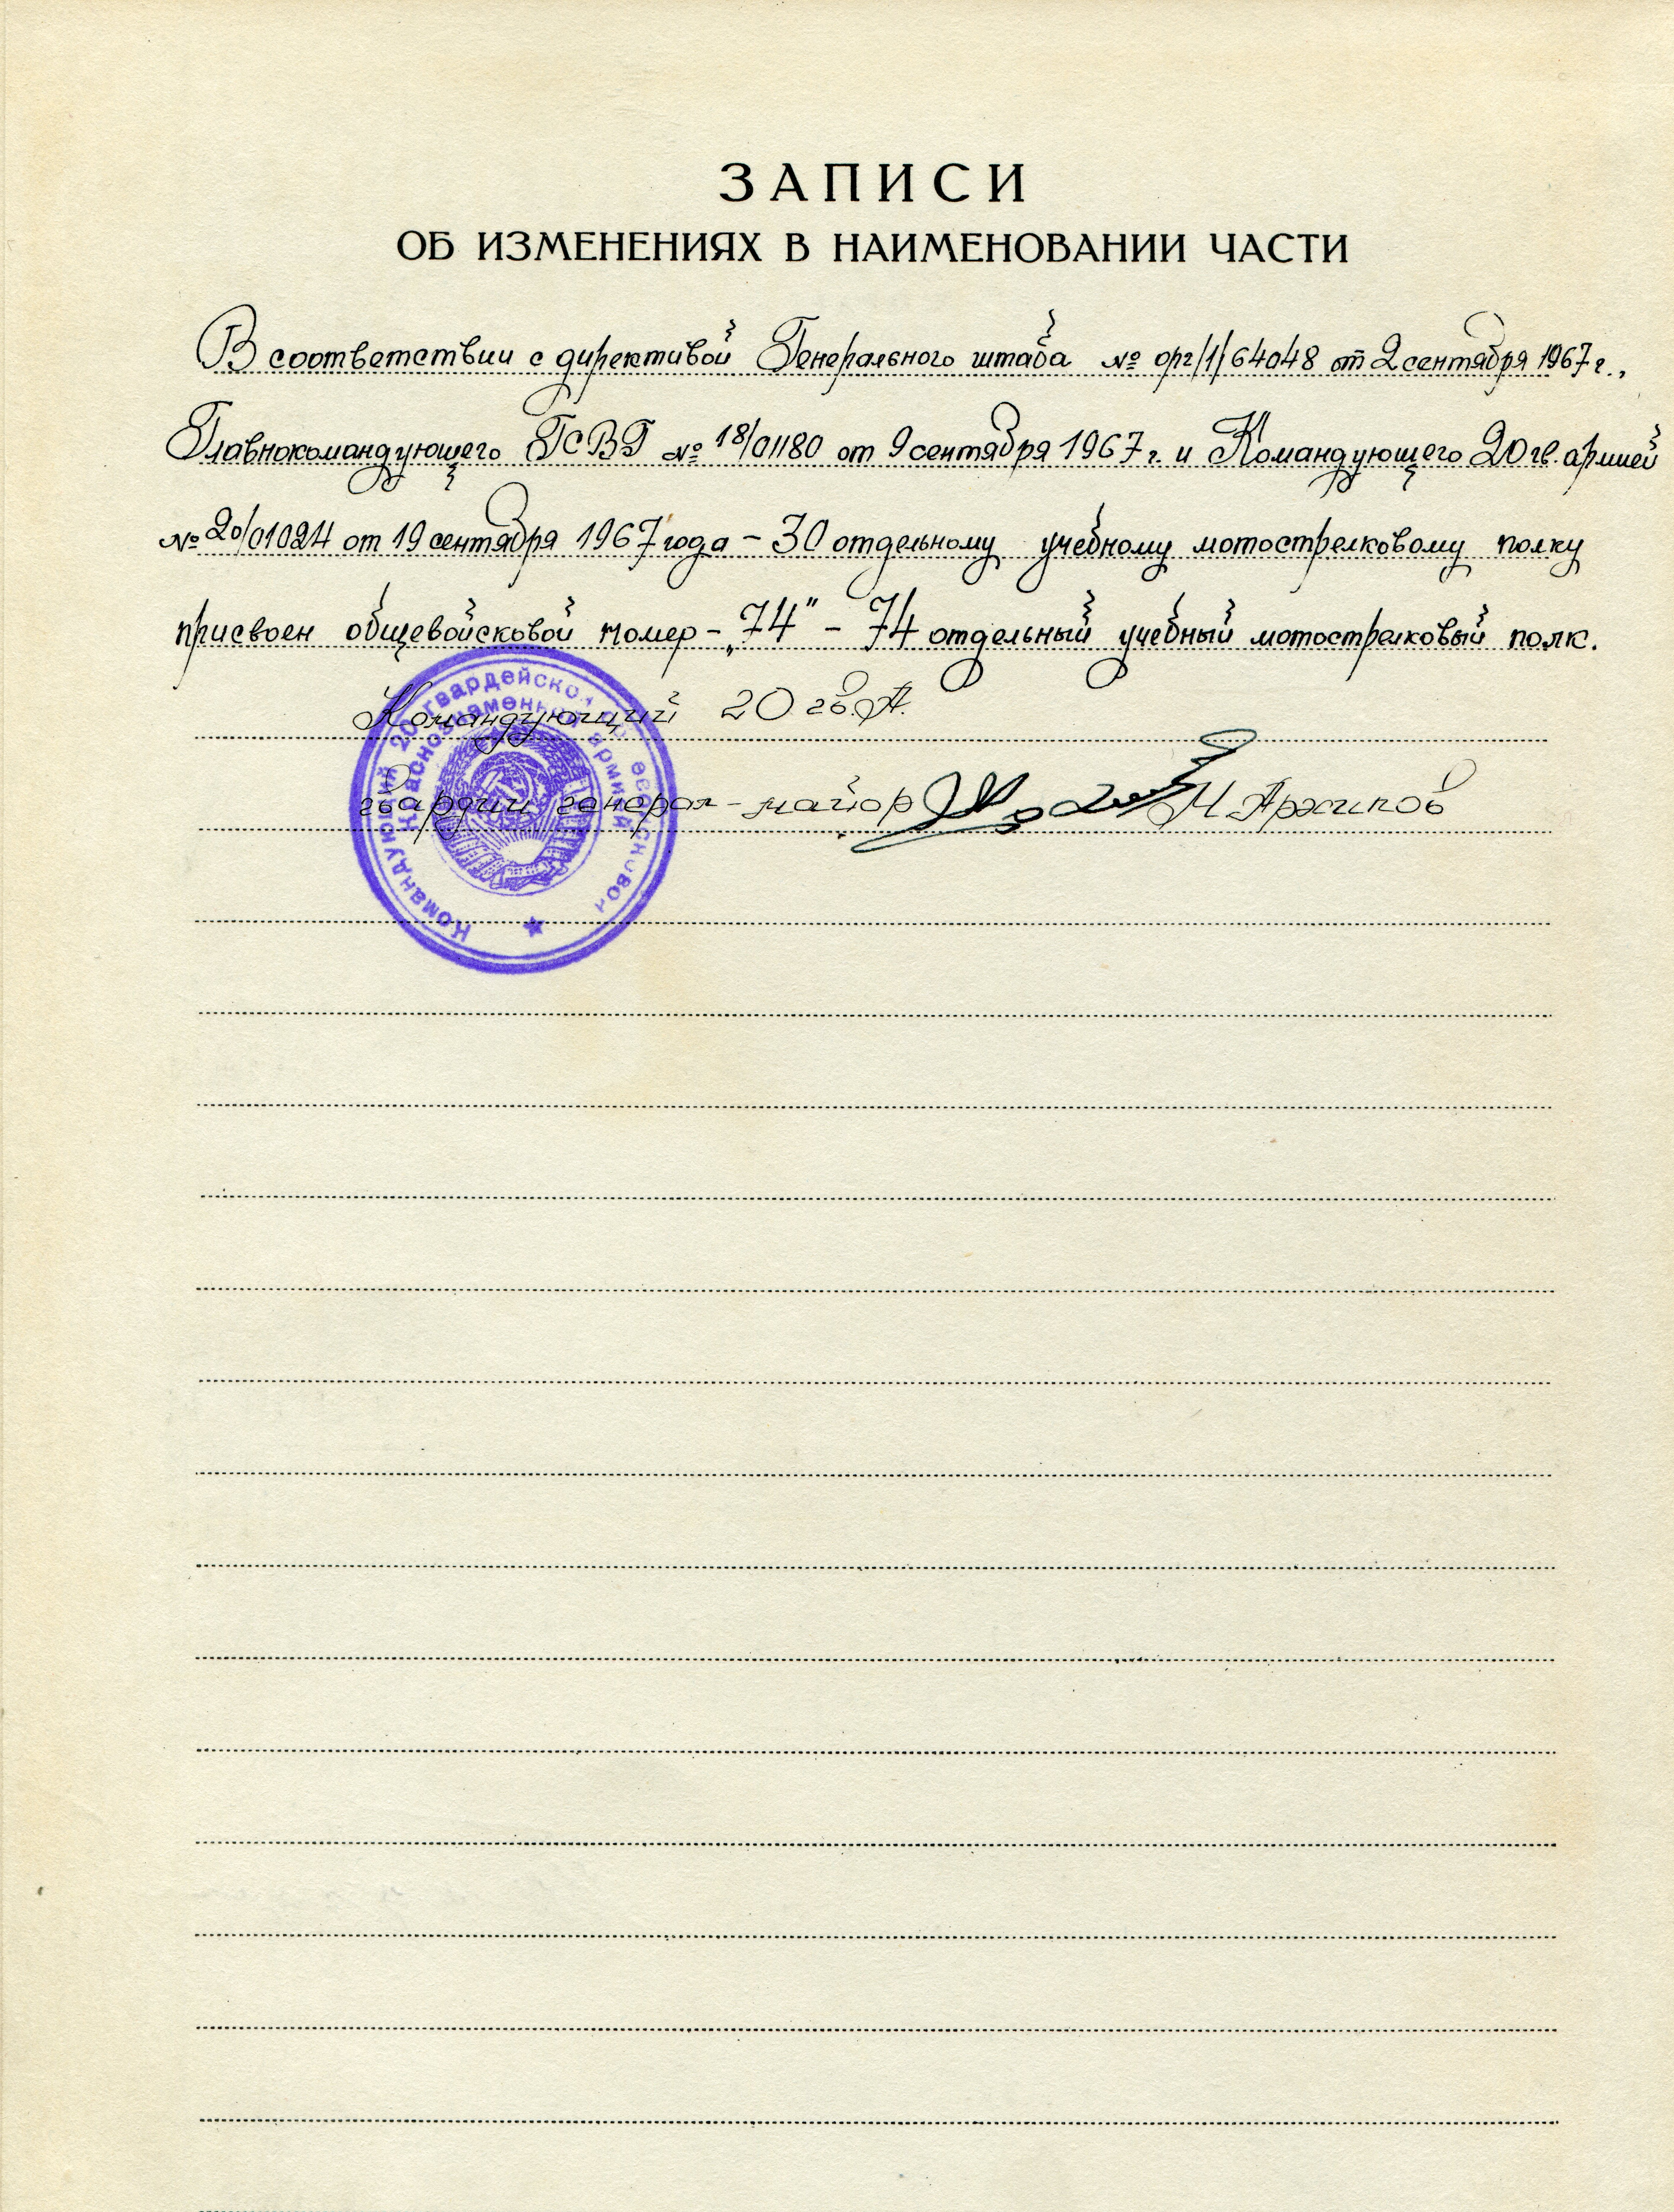 ЗАПИСИ
ОБ ИЗМЕНЕНИЯХ В НАИМЕНОВАНИИ ЧАСТИ
В соответствии с директивой Генерального штаба № орг/1/64048 от 2 сентября 1967 г.,
Главнокомандующего ГСВГ № 18/01180 от 9 сентября 1967 г. и Командующего 20 гв. армией
№ 20/01024 от 19 сентября 1967 года – 30 отдельному учебному мотострелковому полку
присвоен общевойсковой номер – „74" – 74 отдельный учебный мотострелковый полк.
Командующий 20 гв. А.
гвардии генерал-майор И Архипов
Командующий 20 гвардейской общевойсковой
Краснознаменной армией